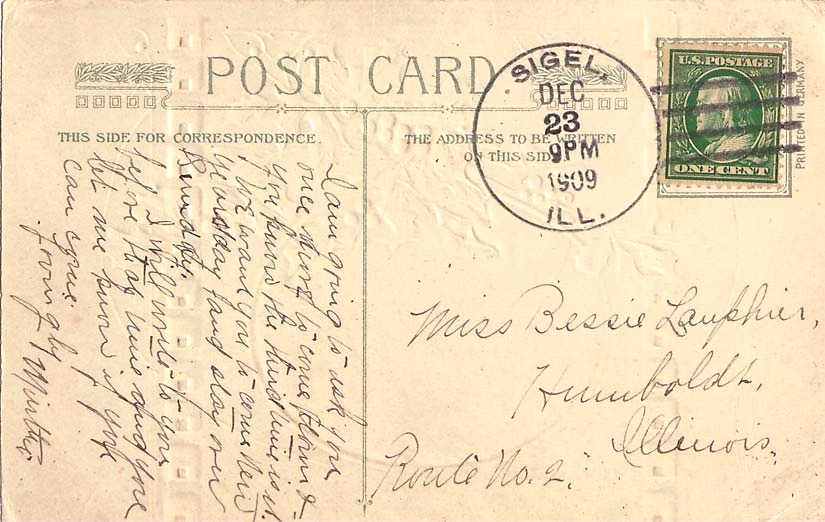 POST CARD.
THIS SIDE FOR CORRESPONDENCE.
THE ADDRESS TO BE WRITTEN
ON THIS SIDE
SIGEL,
DEC
23
9PM
1909
ILL.
U.S. POSTAGE
ONE CENT
PRINTED IN GERMANY
I am going to ask you
once more to come down &
you know the third time is it.
We want you to come New
day and stay over
Sunday.
I will write to you
before that time and you
let me know if you
can come.
Lovingly
Miss Bessie Lauphier,
Humboldt,
Illinois.
Route No. 2.